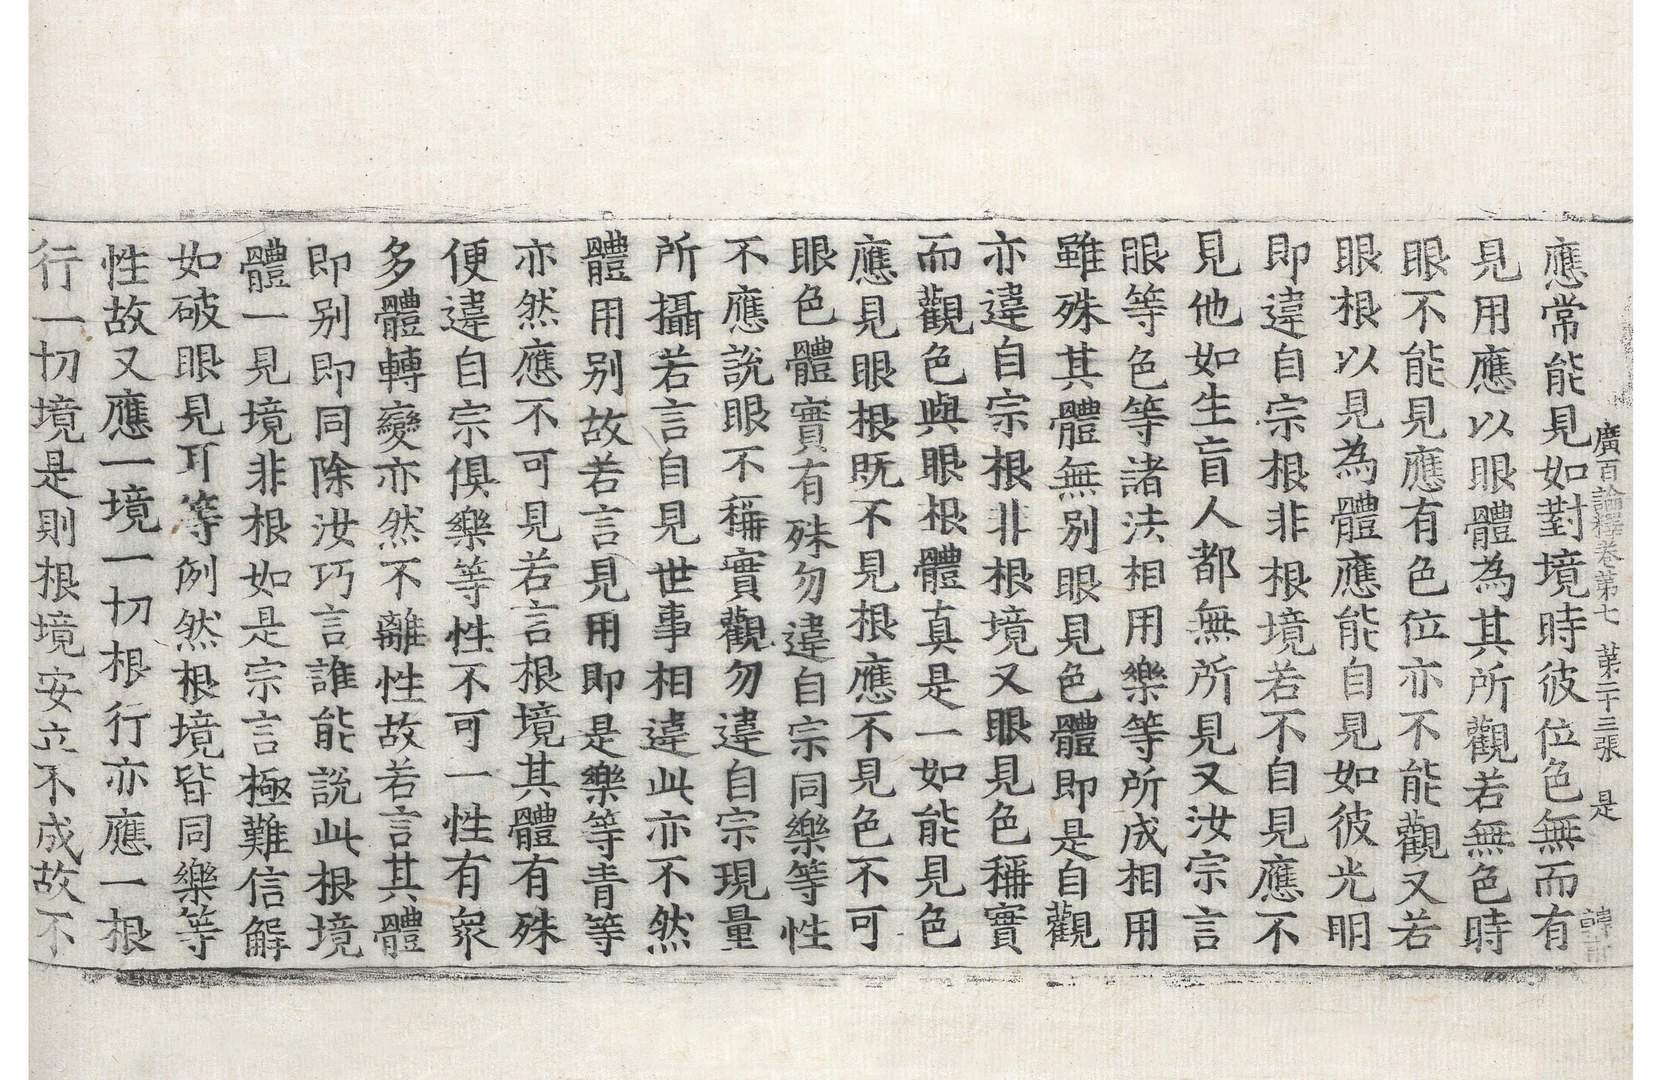 廣百論釋卷第七 第二十三張 是
應常能見如對境時彼位色無而有
見用應以眼體為其所觀若無色時
眼不能見應有色位亦不能觀又若
眼根以見為體應能自見如彼光明
即違自宗根非根境若不自見應不
見他如生盲人都無所見又汝宗言
眼等色等諸法相用樂等所成相用
雖殊其體無別眼見色體即是自觀
亦違自宗根非根境又眼見色稱實
而觀色與眼根體真是一如能見色
應見眼根既不見根應不見色不可
眼色體實有殊勿違自宗同樂等性
不應說眼不稱實觀勿違自宗現量
所攝若言自見世事相違此亦不然
體用別故若言見用即是樂等青等
亦然應不可見若言根境其體有殊
便違自宗俱樂等性不可一性有衆
多體轉變亦然不離性故若言其體
即別即同除汝巧言誰能說此根境
體一見境非根如是宗言極難信解
如破眼見耳等例然根境皆同樂等
性故又應一境一切根行亦應一根
行一切境是則根境安立不成故不